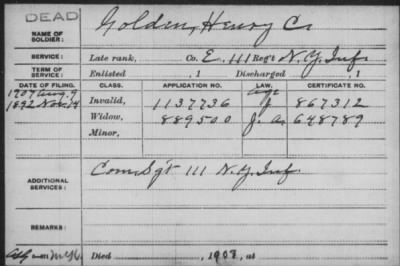 DEAD
NAME OF SOLDIER: Golden, Henry C.
SERVICE: Late rank, Co. E, 111 Reg't N.Y. Inf.
TERM OF SERVICE: Enlisted , 1 Discharged , 1
DATE OF FILING. CLASS. APPLICATION NO. LAW. CERTIFICATE NO.
1907 Aug. 9 Invalid, 1137736 J 867312
1892 Nov. 14 Widow, 889500 648789
Minor,
ADDITIONAL SERVICES: Com Sgt 111 N.Y. Inf.
REMARKS:
Died , 1908, at